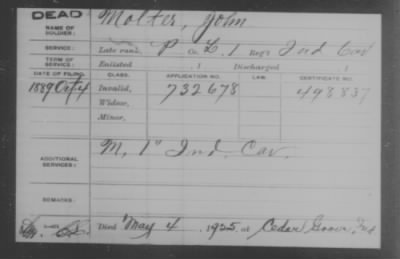 DEAD
NAME OF SOLDIER: Molter, John
SERVICE: Late rank, P Co. L, 1 Reg't Ind Cav
TERM OF SERVICE: Enlisted , 1 Discharged , 1
DATE OF FILING. CLASS. APPLICATION NO. LAW. CERTIFICATE NO.
1889 Oct 4 Invalid, 732678 498837
Widow,
Minor,
ADDITIONAL SERVICES: M, 1" Ind. Cav.
REMARKS:
Died May 4, 1925 at Cedar Grove, Ind